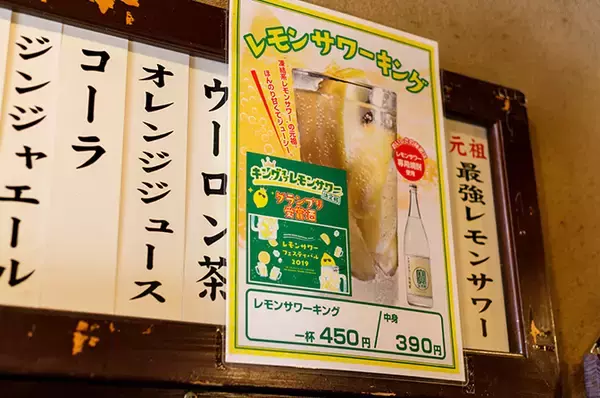 ジンジャエール
コーラ
オレンジジュース
ウーロン茶
レモンサワーキング
凍結系レモンサワーの元祖
ほんのり甘くてジューシー
キングオブレモンサワー
グランプリ
受賞酒
レモンサワー
フェスティバル
2019
レモンサワー
専用焼酎
使用
レモンサワーキング
一杯 450円
中身
390円
元祖
最強レモンサワー